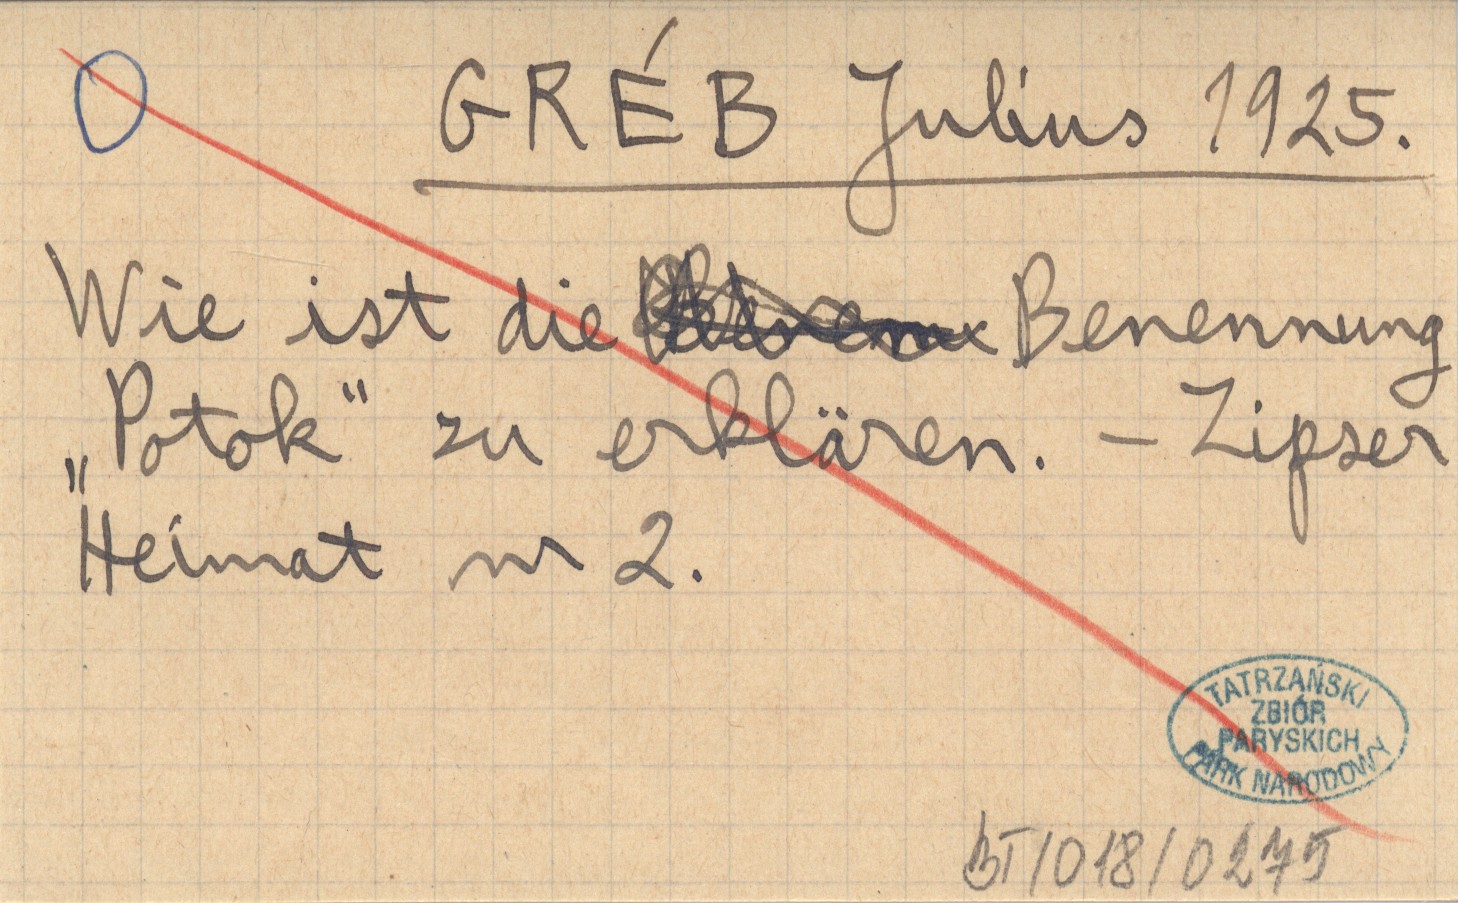 GRÉB Julius 1925.
Wie ist die Benennung
„Potok" zu erklären. – Zipser
„Heimat nr 2.
TATRZAŃSKI
ZBIÓR
PARYSKICH
PARK NARODOWY
BT/018/0275